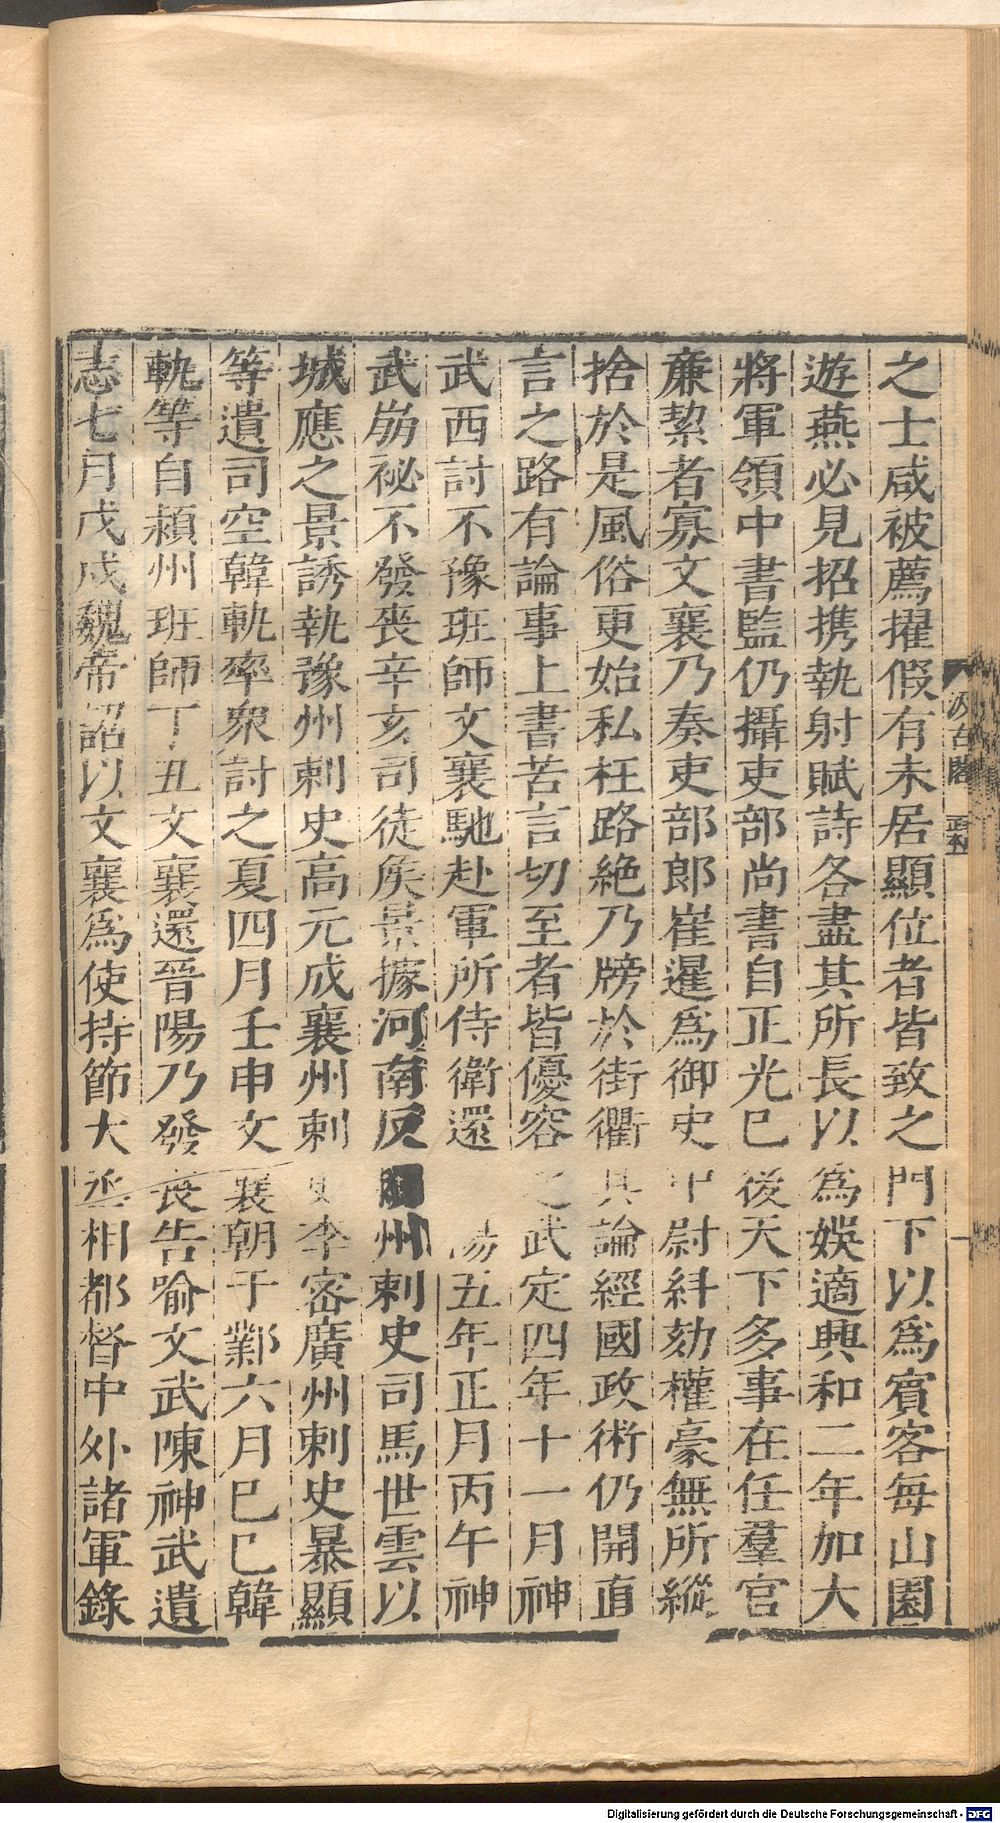 之士咸被薦擢假有未居顯位者皆致之門下以爲賓客每山園
遊燕必見招携執射賦詩各盡其所長以爲娛適興和二年加大
將軍領中書監仍攝吏部尚書自正光已後天下多事在任羣官
廉絜者寡文襄乃奏吏部郎崔暹爲御史中尉糾劾權豪無所縱
捨於是風俗更始私枉路絶乃牓於街衢具論經國政術仍開直
言之路有論事上書苦言切至者皆優容之武定四年十一月神
武西討不豫班師文襄馳赴軍所侍衛還陽五年正月丙午神
武崩祕不發喪辛亥司徒矦景據河南反州刺史司馬世雲以
城應之景誘執豫州刺史高元成襄州刺史李密廣州刺史暴顯
等遣司空韓軌率衆討之夏四月壬申文襄朝于鄴六月巳巳韓
軌等自潁州班師丁丑文襄還晉陽乃發喪告喻文武陳神武遺
志七月戊戌魏帝詔以文襄爲使持節大丞相都督中外諸軍錄
汲古閣
Digitalisierung gefördert durch die Deutsche Forschungsgemeinschaft - DFG